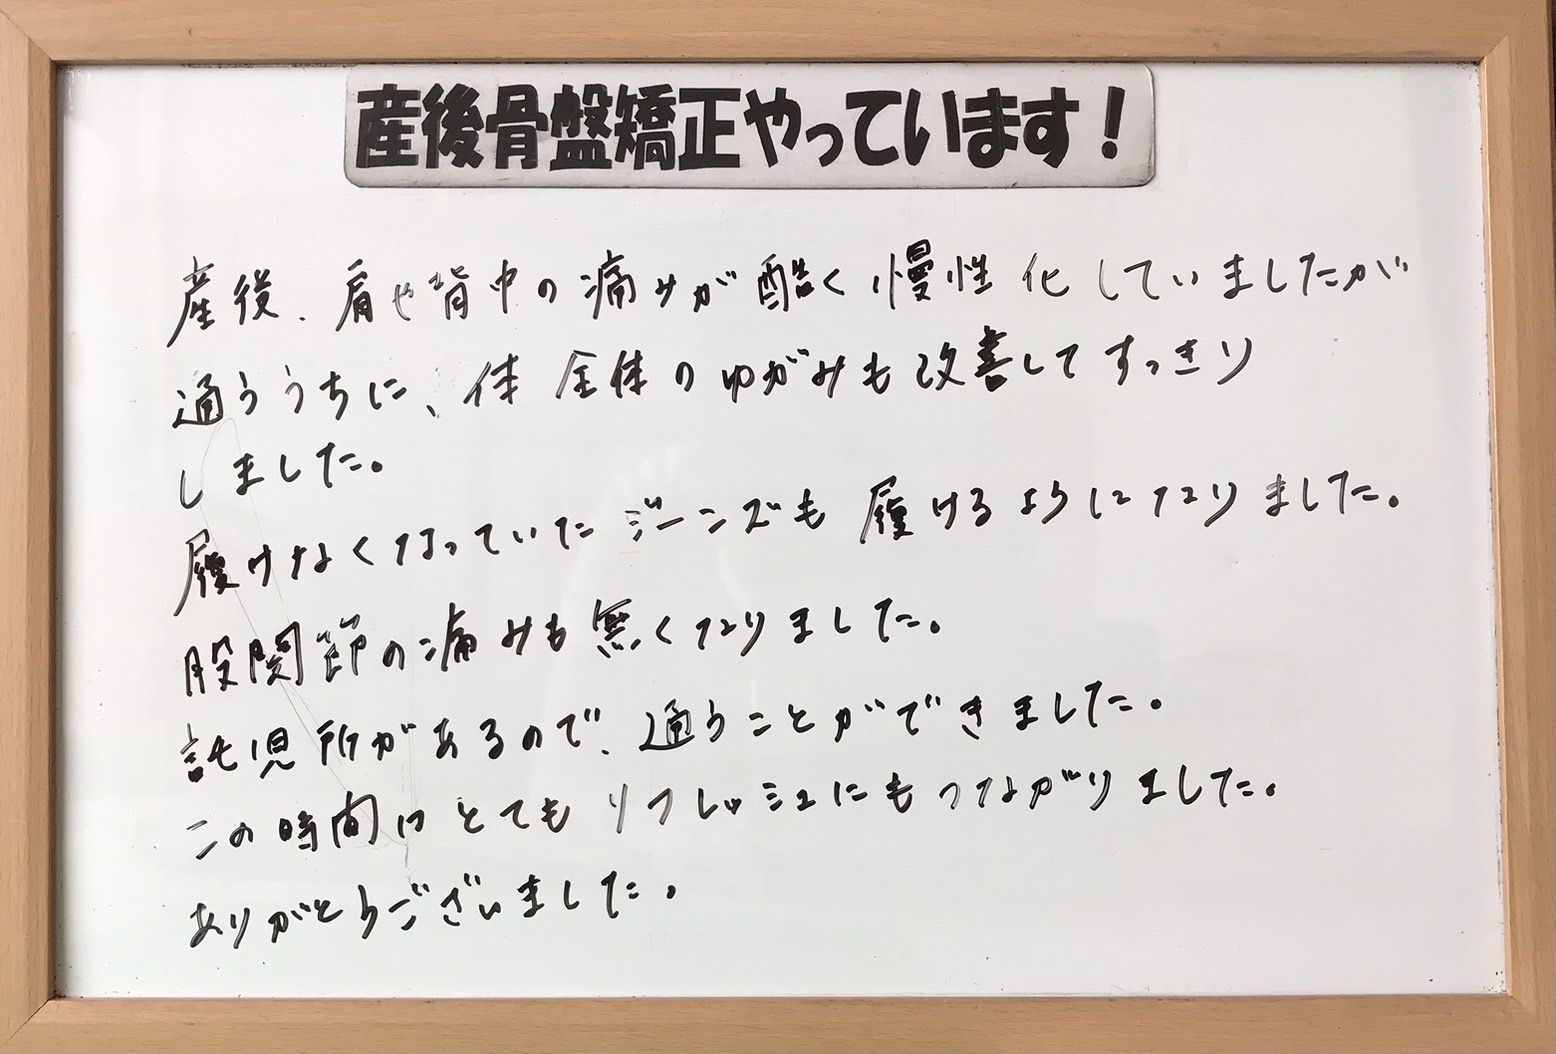 産後骨盤矯正やっています!
産後、肩や背中の痛みが酷く慢性化していましたが
通ううちに、体全体のゆがみも改善してすっきり
しました。
履けなくなっていたジーンズも履けるようになりました。
股関節の痛みも無くなりました。
託児所があるので、通うことができました。
この時間はとてもリフレッシュにもつながりました。
ありがとうございました。